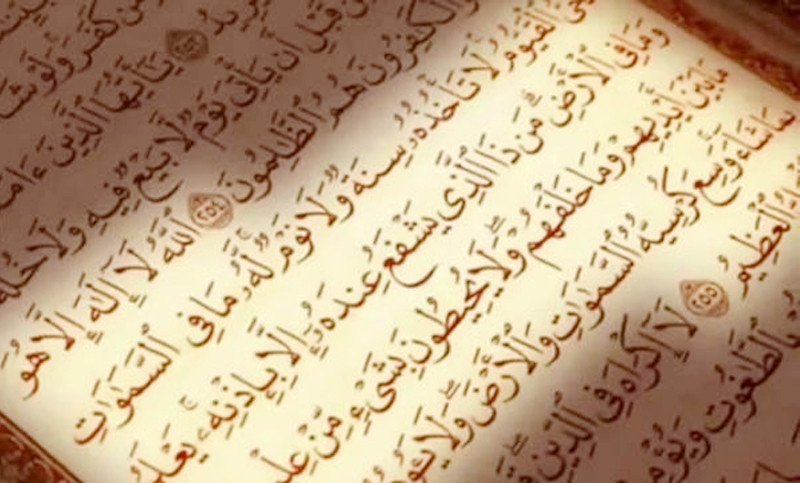 مَّن كَفَرَ وَلَوْ شَا
يُرِيدُ ٢٥٣ يَٰٓأَيُّهَا ٱلَّذِينَ ءَامَ
مِّن قَبْلِ أَن يَأْتِىَ يَوْمٌ لَّا بَيْعٌ فِيهِ وَلَا خُلَّةٌ
وَٱلْكَٰفِرُونَ هُمُ ٱلظَّٰلِمُونَ ٢٥٤ ٱللَّهُ لَآ إِلَٰهَ إِلَّا هُوَ
ٱلْقَيُّومُ لَا تَأْخُذُهُۥ سِنَةٌ وَلَا نَوْمٌ لَّهُۥ مَا فِى ٱلسَّمَٰوَٰتِ
وَمَا فِى ٱلْأَرْضِ مَن ذَا ٱلَّذِى يَشْفَعُ عِندَهُۥٓ إِلَّا بِإِذْنِهِۦ يَعْلَمُ
مَا بَيْنَ أَيْدِيهِمْ وَمَا خَلْفَهُمْ وَلَا يُحِيطُونَ بِشَىْءٍ مِّنْ عِلْ
بِمَا شَآءَ وَسِعَ كُرْسِيُّهُ ٱلسَّمَٰوَٰتِ وَٱلْأَرْضَ وَلَا يَـُٔو
ٱلْعَظِيمُ ٢٥٥ لَآ إِكْرَاهَ فِى ٱلدِّينِ
بِٱلطَّٰغُوتِ وَيُؤْمِ